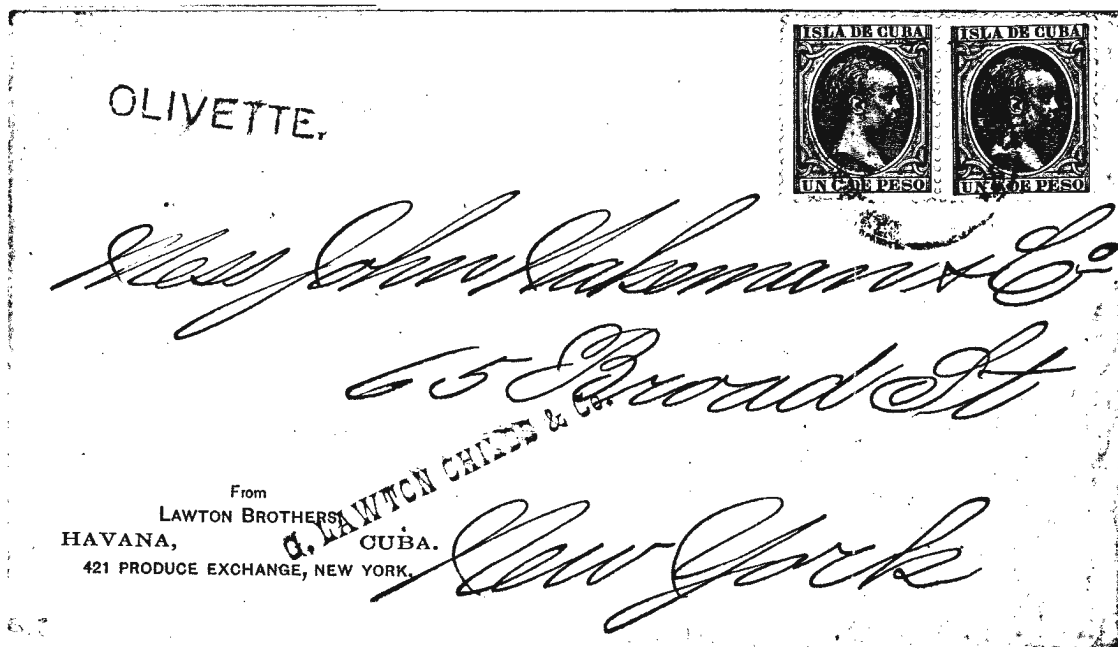 ISLA DE CUBA ISLA DE CUBA
UN C. DE PESO UN C. DE PESO
OLIVETTE.
Mess John Wakeman & Co
65 Broad St
New York
G. LAWTON CHILDS & Co.
From
LAWTON BROTHERS
HAVANA, CUBA.
421 PRODUCE EXCHANGE, NEW YORK.